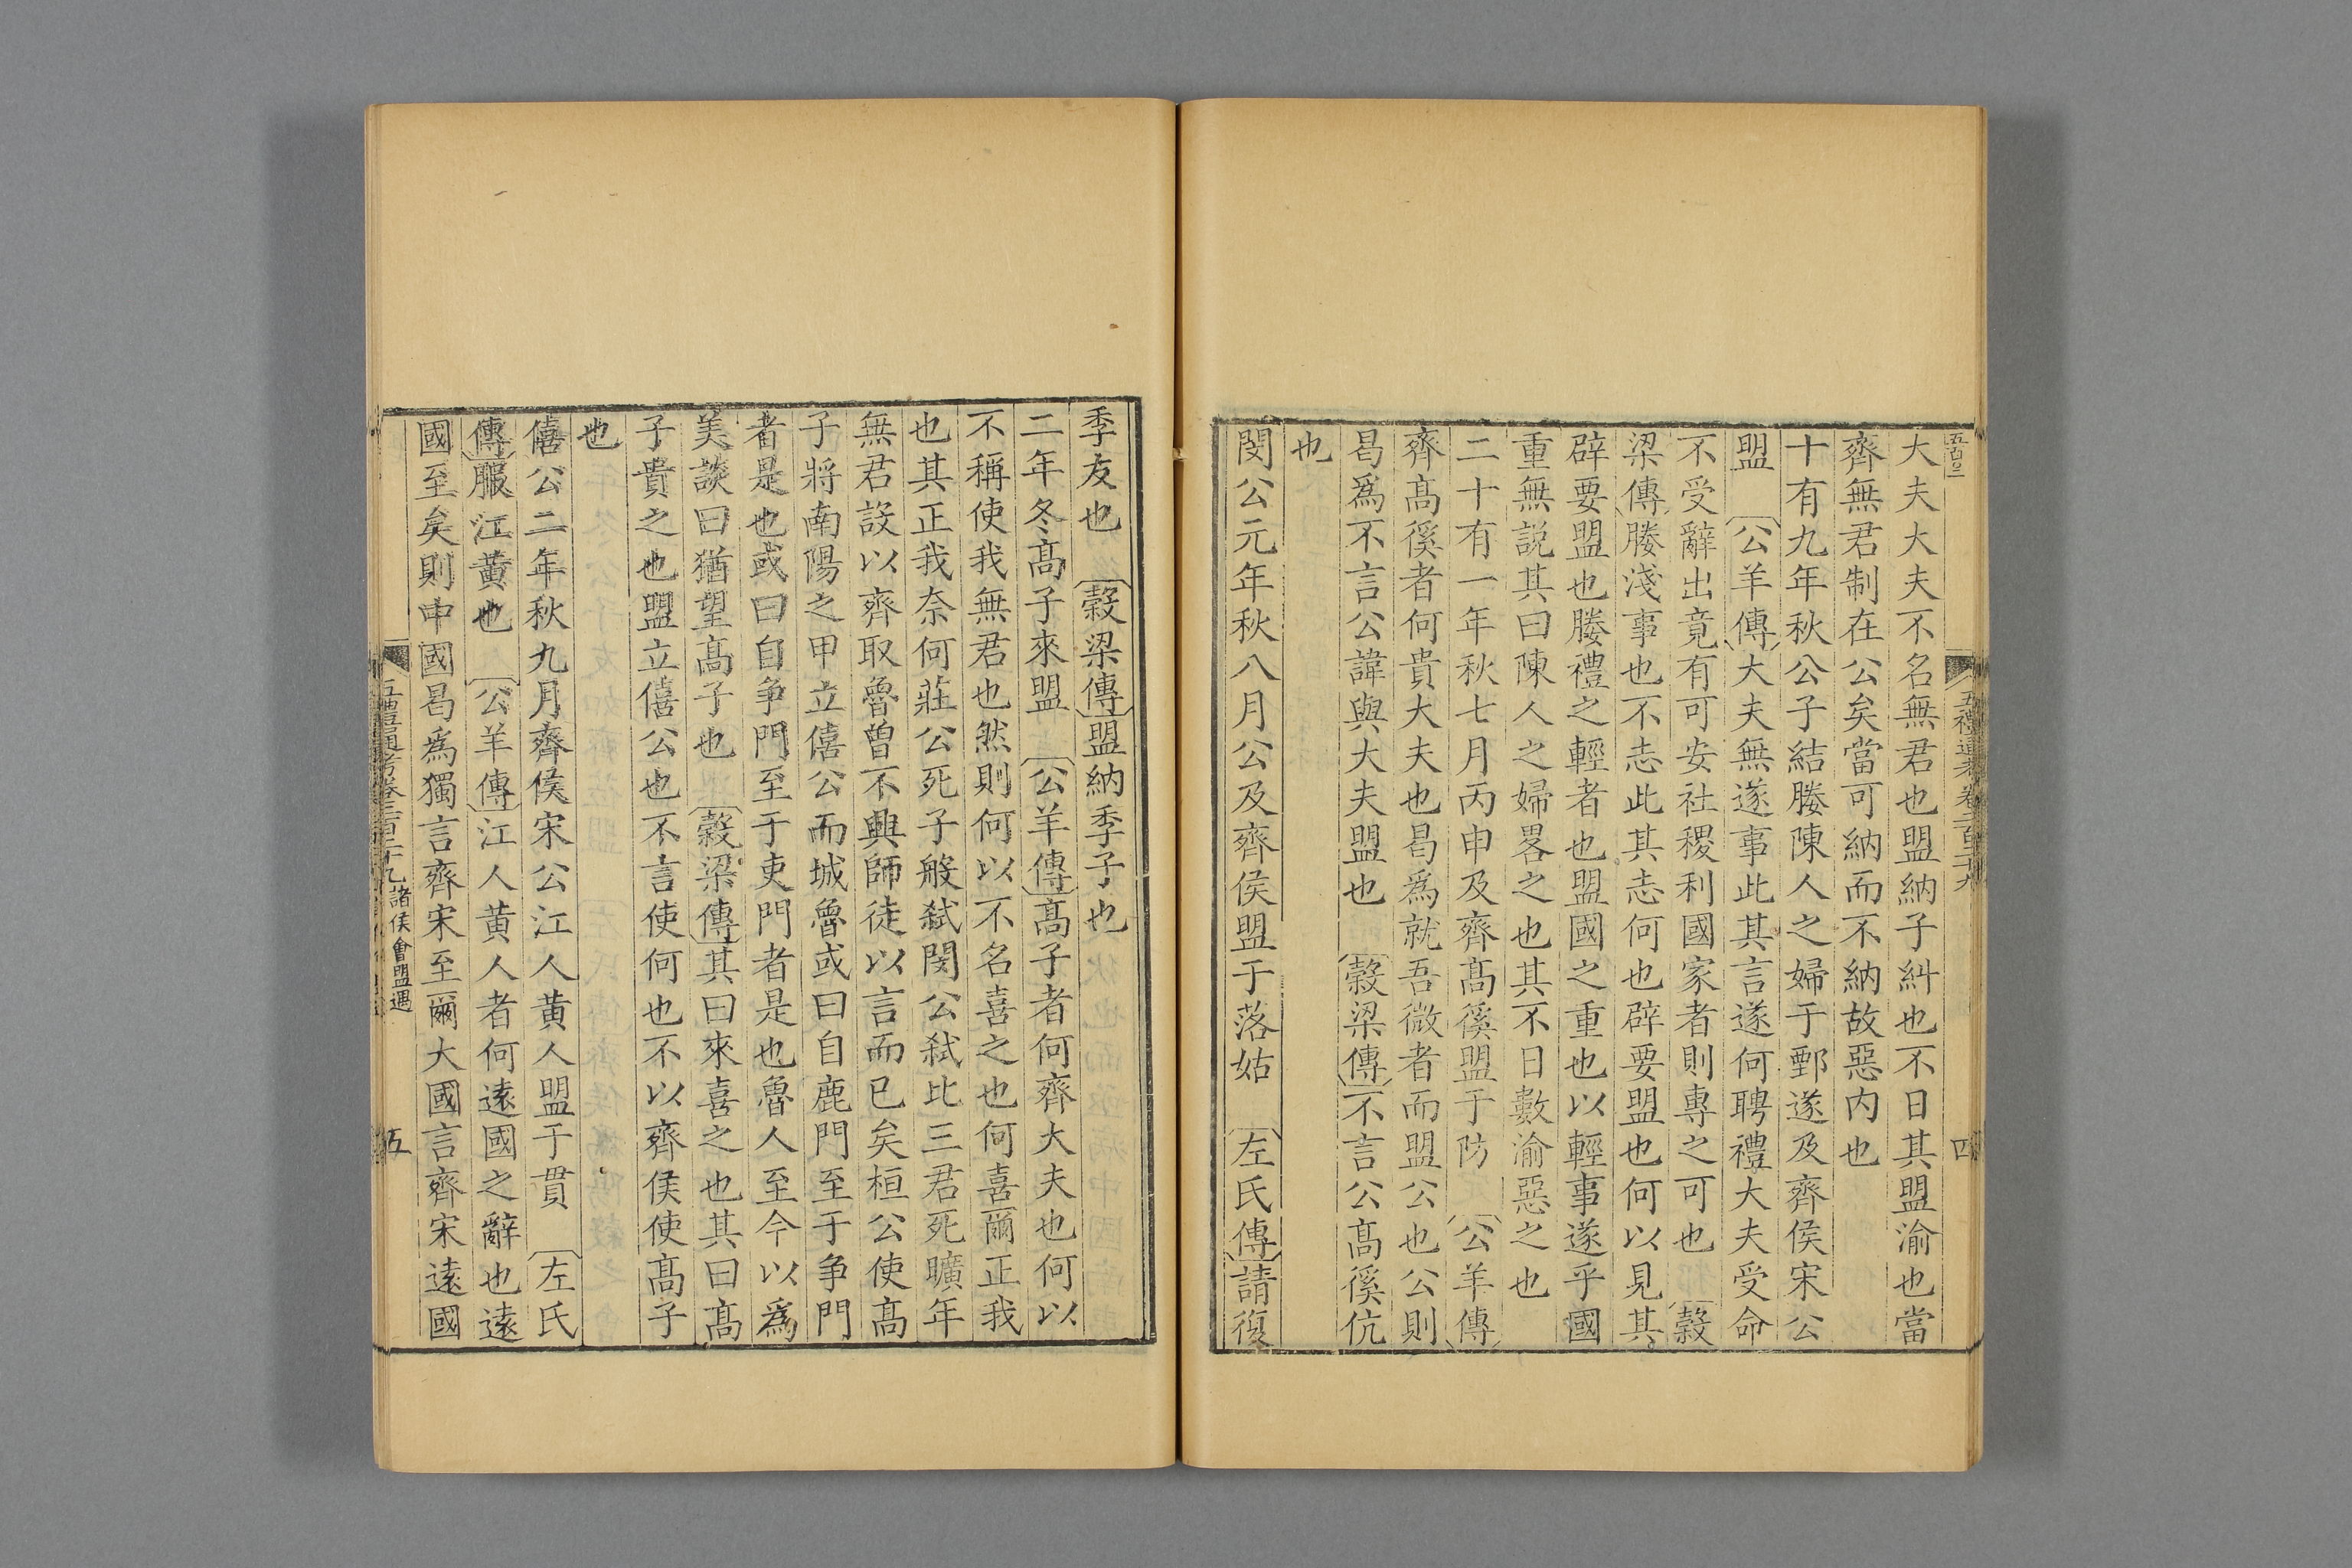 大夫大夫不名無君也盟納子糾也不日其盟渝也當
齊無君制在公矣當可納而不納故惡内也
十有九年秋公子結媵陳人之婦于鄄遂及齊侯宋公
盟　公羊傳大夫無遂事此其言遂何聘禮大夫受命
不受辭出竟有可安社稷利國家者則專之可也　穀
梁傳媵淺事也不志此其志何也辟要盟也何以見其
辟要盟也媵禮之輕者也盟國之重也以輕事遂乎國
重無説其曰陳人之婦畧之也其不日數渝惡之也
二十有一年秋七月丙申及齊髙徯盟于防　公羊傳
齊髙徯者何貴大夫也曷爲就吾微者而盟公也公則
曷爲不言公諱與大夫盟也　穀梁傳不言公髙徯伉
也
閔公元年秋八月公及齊侯盟于落姑　左氏傳請復
四
季友也　穀梁傳盟納季子也
二年冬髙子來盟　公羊傳髙子者何齊大夫也何以
不稱使我無君也然則何以不名喜之也何喜爾正我
也其正我奈何莊公死子般弑閔公弑比三君死曠年
無君設以齊取魯曾不興師徒以言而已矣桓公使髙
子將南陽之甲立僖公而城魯或曰自鹿門至于争門
者是也或曰自争門至于吏門者是也魯人至今以爲
美談曰猶望髙子也　穀梁傳其曰來喜之也其曰髙
子貴之也盟立僖公也不言使何也不以齊侯使髙子
也
僖公二年秋九月齊侯宋公江人黄人盟于貫　左氏
傳服江黄也　公羊傳江人黄人者何遠國之辭也遠
國至矣則中國曷爲獨言齊宋至爾大國言齊宋遠國
五禮通考卷二百二十九 諸侯會盟遇 五